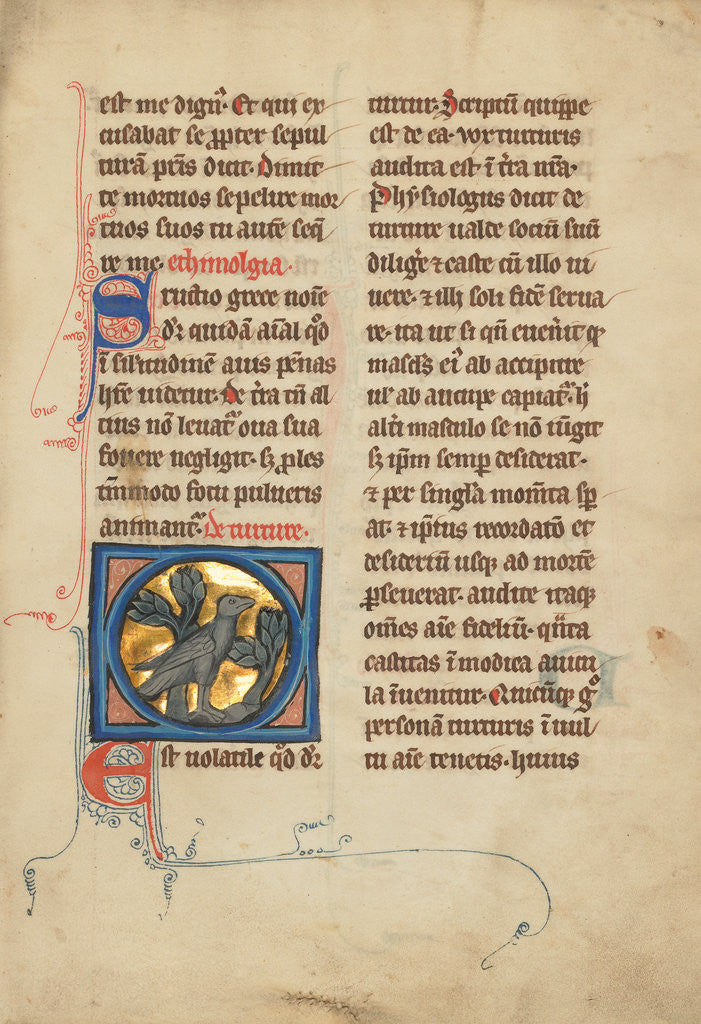 est me dign᷒. Et qui ex
cusabat se ꝓpter sepul
turā pr̄is dicit. Dimit
te mortuos sepelire mor
tuos suos tu autē seq̄
re me. ethimolgia.
Structio grece noīe
dr̄ quidā aīal qd̄
ī silitudinē auis pēnas
hr̄e uidetur. De tr̄a tn̄ al
cius nō leuat᷒ oua sua
fouere negligit. sꝫ ꝓles
tm̄modo fotu pulueris
animant᷒. De turture.
Est uolatile qd̄ dr̄
turtur. Scriptū quippe
est de ea. vox turturis
audita est ī tr̄a nr̄a.
Phẏsiologus dicit de
turture ualde sociū suū
diliḡe ⁊ caste cū illo ui
uere. ⁊ illi soli fidē serua
re. ita ut si qn̄ euen̄it ꝙ
mascls̄ ei᷒ ab accipitre
ul᷒ ab aucupe capiat᷒. h̄
alt̄i masculo se nō iūgit
sꝫ ip̄m semꝑ desiderat.
⁊ per singl̄a mom̄ta sꝑ
at. ⁊ ip̄ius recordatōe et
desideriū usqꝫ ad mortē
ꝑseuerat. audite itaqꝫ
om̄es aīe fideliū. qn̄ta
castitas ī modica auicu
la īuenitur. Quicūqꝫ g᷒
personā turturis ī uul
tu aīe tenetis. huius